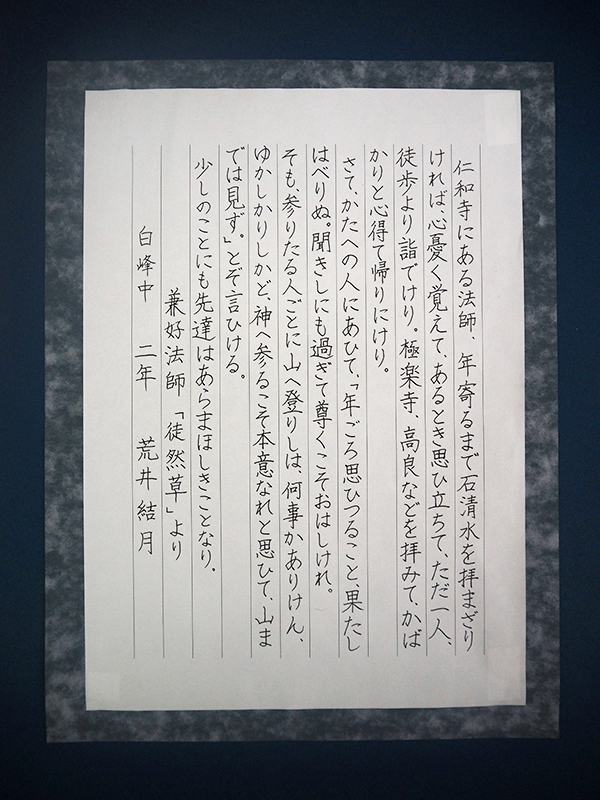 仁和寺にある法師、年寄るまで石清水を拝まざり
ければ、心憂く覚えて、あるとき思ひ立ちて、ただ一人、
徒歩より詣でけり。極楽寺、高良などを拝みて、かば
かりと心得て帰りにけり。
さて、かたへの人にあひて、「年ごろ思ひつること、果たし
はべりぬ。聞きしにも過ぎて尊くこそおはしけれ。
そも、参りたる人ごとに山へ登りしは、何事かありけん、
ゆかしかりしかど、神へ参るこそ本意なれと思ひて、山ま
では見ず。」とぞ言ひける。
少しのことにも先達はあらまほしきことなり。
兼好法師「徒然草」より
白峰中 二年 荒井結月